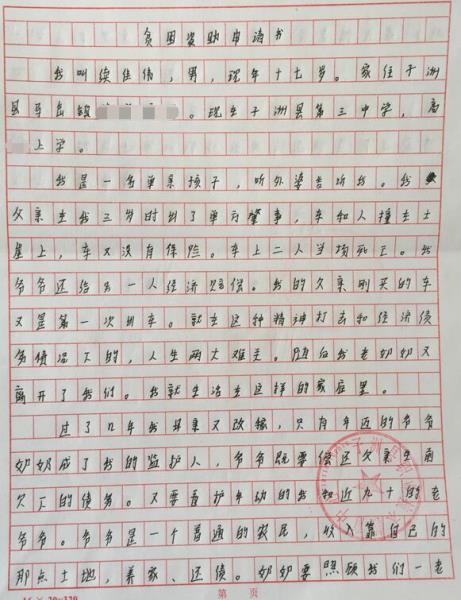 贫困资助申请书
我叫续佳倩，男，现年十七岁。家住子洲
县马岔镇。现在子洲县第三中学，高
上学。
我是一名单亲孩子，听外婆告诉我。我
父亲在我三岁时出了车祸肇事，车和人撞在土
崖上，车又没有保险。车上二人当场死亡。我
爷爷还给另一人经济赔偿。我的父亲刚买的车
又是第一次出车。就在这种精神打击和经济债
务情况下的，人生两大难关。随后我老奶奶又
离开了我们。我就生活在这样的家庭里。
过了几年我母亲又改嫁，只有年迈的爷爷
奶奶成了我的监护人，爷爷既要偿还父亲生前
欠下的债务。又要看护年幼的我和近九十的老
爷爷。爷爷是一个普通的农民，收入靠自己的
那点土地，养家、还债。奶奶要照顾我们一老
第 页
16×20=320